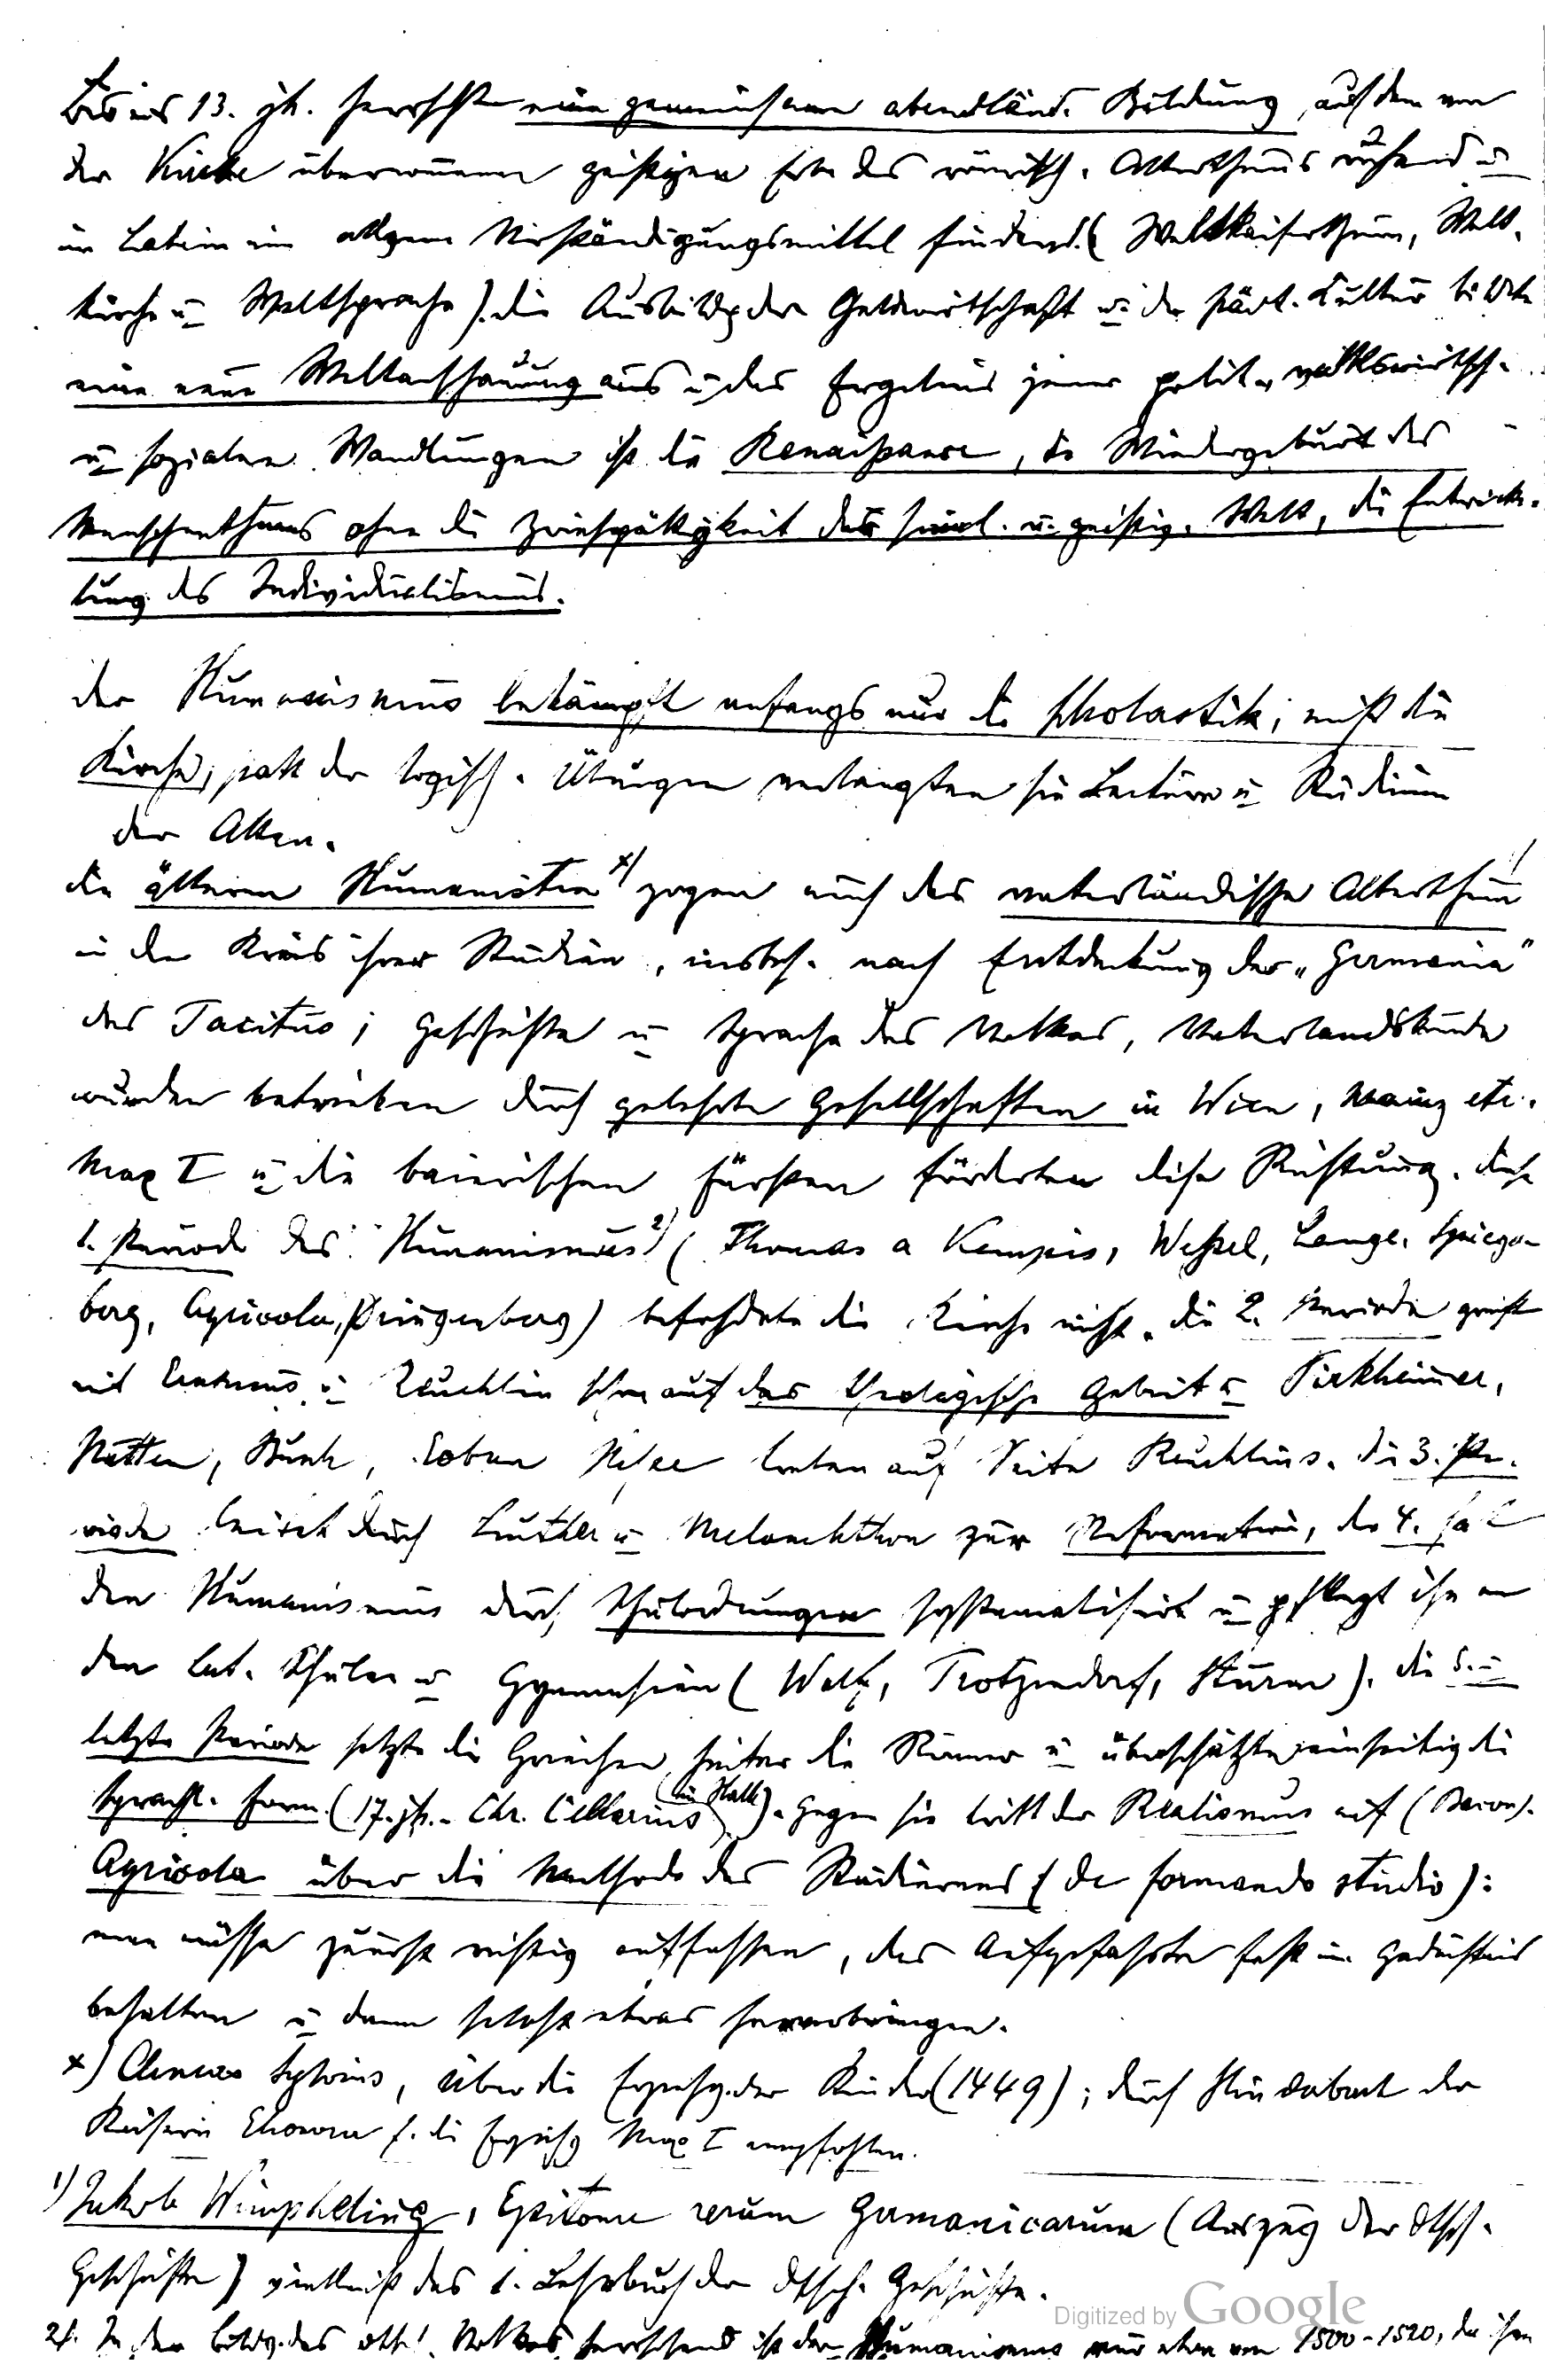 Bis ins 13. Jh. herrschte eine gemeinsame abendländ. Bildung, auf dem von
der Kirche übernommenen geistigen Erbe des römisch. Alterthums ruhend u
im Latein ein allgem Verständigungsmittel findend. (Weltkaiserthum, Welt-
kirche u Weltsprache). die Ausbildg der Geldwirtschaft u. der städt. Kultur bildete
eine neue Weltanschauung aus u das Ergebnis jener polit., volkswirtsch.
u sozialen Wandlungen ist die Renaissance, die Wiedergeburt des
Menschenthums ohne die Zwiespältigkeit der sinnl. u. geistig. Welt, die Entwicke-
lung des Individualismus.
der Humanismus bekämpft anfangs nur die Scholastik, nicht die
Kirche; statt der logisch. Übungen verlangten sie Lectüre u Studium
der Alten.
die älteren Humanisten x) zogen auch das vaterländische Alterthum 1)
in den Kreis ihrer Studien, insbes. nach Entdeckung der „Germania"
des Tacitus; Geschichte u Sprache des Volkes, Vaterlandskunde
wurden betrieben durch gelehrte Gesellschaften in Wien, Mainz etc.
Max I u die baierischen Fürsten förderten diese Richtung. diese
1. Periode des Humanismus 2) (Thomas a Kempis, Wessel, Lange, Spiegel-
berg, Agricola, Dringenberg) befehdete die Kirche nicht. die 2. Periode greift
mit Erasmus u Reuchlin schon auf das theologische Gebiet u Pirkheimer,
Hutten, Busch, Eoban Hesse treten auf Seite Reuchlins. die 3. Pe-
riode leitet durch Luther u Melanchthon zur Reformation, die 4. hat
den Humanismus durch Schulordnungen systematisirt u pflegt ihn an
den lat. Schulen u Gymnasien (Wolf, Trotzendorf, Sturm). die 5. u
letzte Periode setzte die Griechen hinter die Römer u überschätzte einseitig die
sprachl. Form. (17. Jh. - Chr. Cellarius (in Halle)). Gegen sie tritt der Realismus auf (Bacon).
Agricola über die Methode des Studierens (de formando studio):
man müsse zuerst richtig auffassen, das Aufgefasste fest im Gedächtnis
behalten u dann selbst etwas hervorbringen.
x) Aeneas Sylvius, über die Erziehg. der Kinder (1449); durch Hinderbach der
Kaiserin Eleonora f. die Erziehg Max I empfohlen.
1) Jakob Wimpheling, Epitome rerum Germanicarum (Auszug der dtsch.
Geschichte) vielleicht das 1. Lehrbuch der dtsch. Geschichte.
2). In der Bildg. des Volkes herrschend ist der Humanismus nur etwa von 1500-1520, da ihn
Digitized by Google